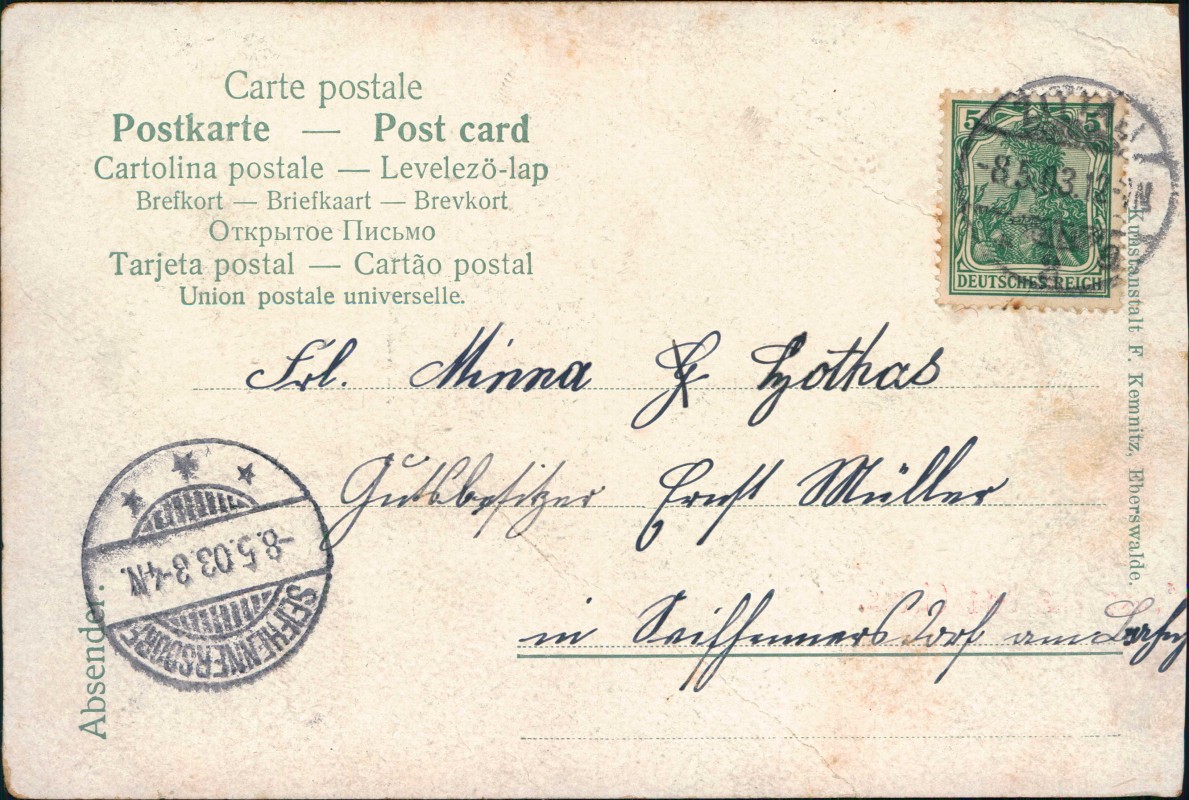 Carte postale
Postkarte — Post card
Cartolina postale — Levelező-lap
Brefkort — Briefkaart — Brevkort
Открытое Письмо
Tarjeta postal — Cartão postal
Union postale universelle.
5 5
DEUTSCHES REICH
-8.5.03.12-
Kunstanstalt F. Kemnitz, Eberswalde.
Frl. Minna
Gutsbesitzer Ernst Müller
in Seifhennersdorf am
-8.5.03.3-4N.
SEIFHENNERSDORF
Absender: